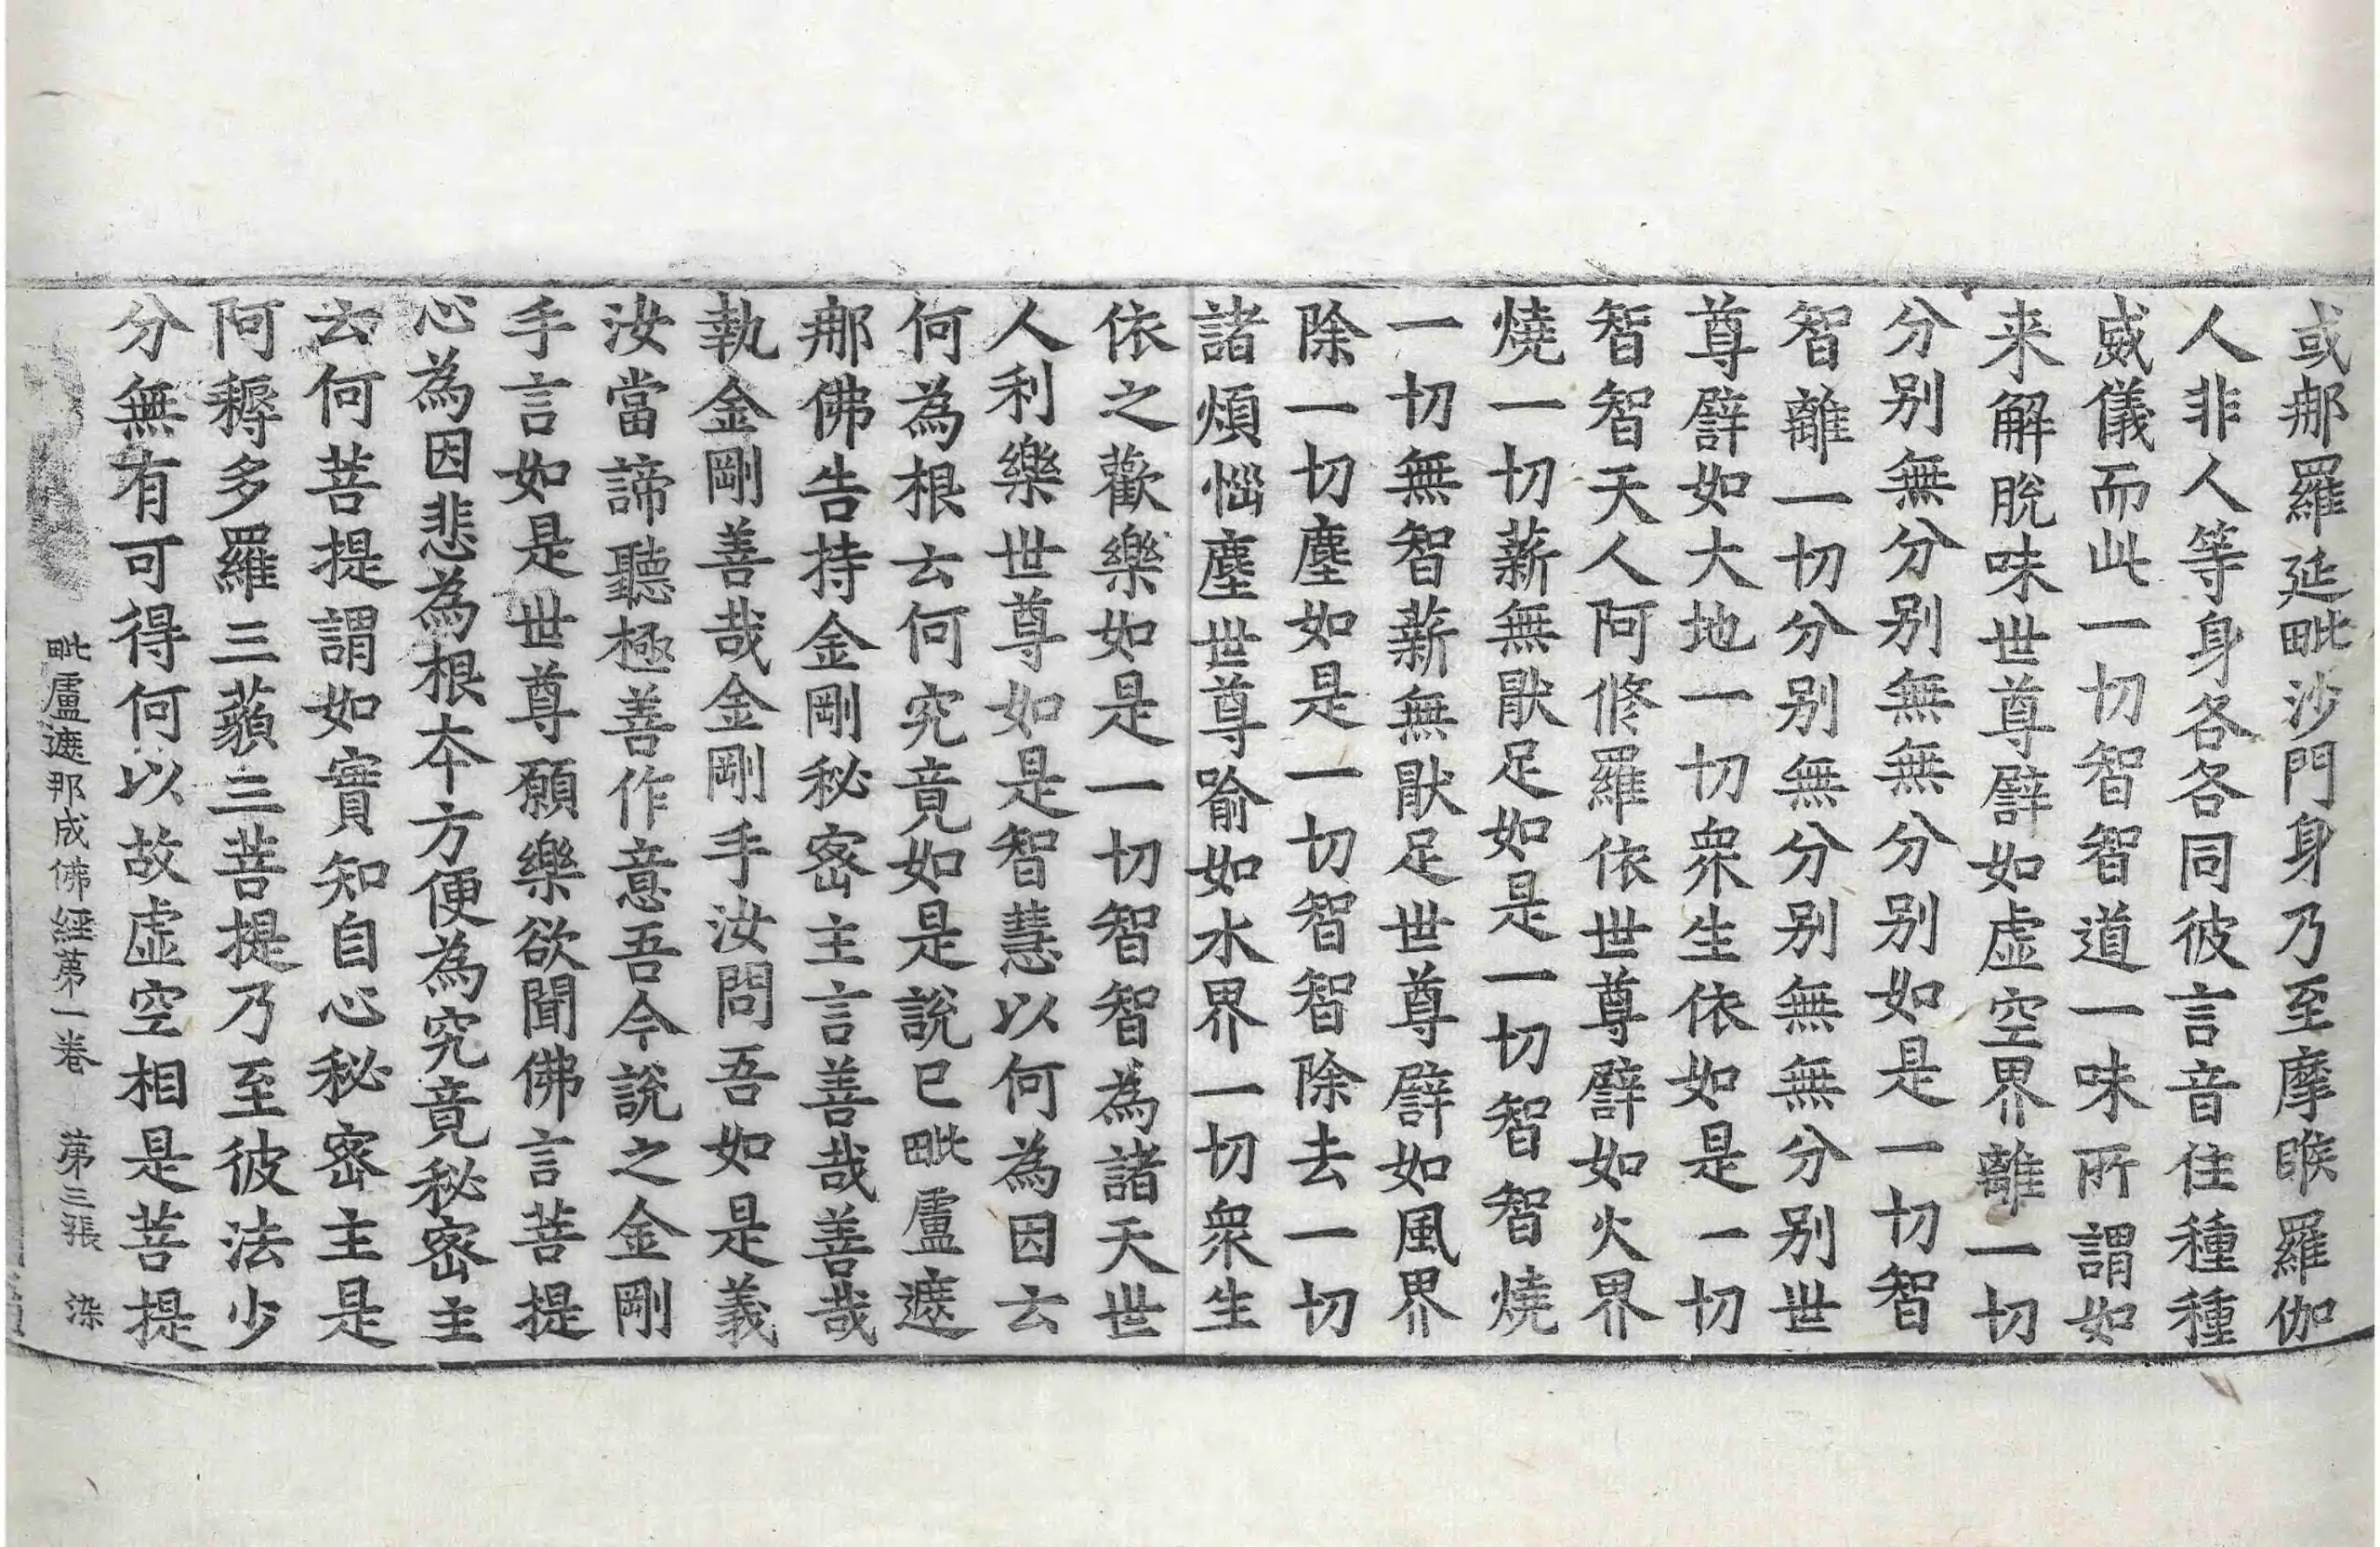 或那羅延毗沙門身乃至摩睺羅伽
人非人等身各各同彼言音住種種
威儀而此一切智智道一味所謂如
来解脫味世尊譬如虛空界離一切
分別無分別無無分別如是一切智
智離一切分別無分別無無分別世
尊譬如大地一切衆生依如是一切
智智天人阿修羅依世尊譬如火界
燒一切薪無猒足如是一切智智燒
一切無智薪無猒足世尊譬如風界
除一切塵如是一切智智除去一切
諸煩惱塵世尊喻如水界一切衆生
依之歡樂如是一切智智為諸天世
人利樂世尊如是智慧以何為因云
何為根云何究竟如是說已毗盧遮
那佛告持金剛秘密主言善哉善哉
執金剛善哉金剛手汝問吾如是義
汝當諦聽極善作意吾今說之金剛
手言如是世尊願樂欲聞佛言菩提
心為因悲為根本方便為究竟秘密主
云何菩提謂如實知自心秘密主是
阿耨多羅三藐三菩提乃至彼法少
分無有可得何以故虛空相是菩提
毗盧遮那成佛經第一卷 第三張 染